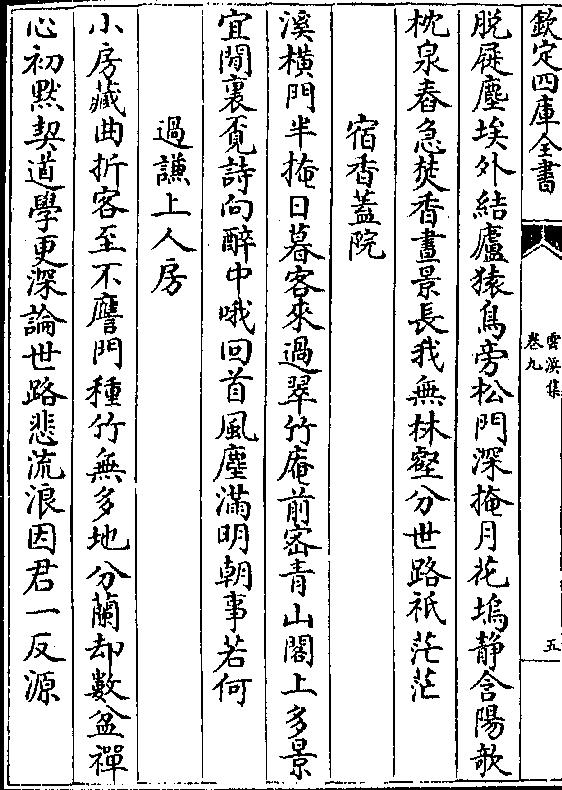 欽定四庫全書
雲溪集
卷九
五
脱屣塵埃外結廬猿鳥旁松門深掩月花塢静含陽欹
枕泉舂急焚香晝景長我無林壑分世路祇茫茫
宿香蓋院
溪横門半掩日暮客來過翠竹庵前宻青山閣上多景
宜閒裏覔詩向醉中哦回首風塵滿明朝事若何
過謙上人房
小房藏曲折客至不譍門種竹無多地分蘭却數盆禪
心初黙契道學更深論世路悲流浪因君一反源